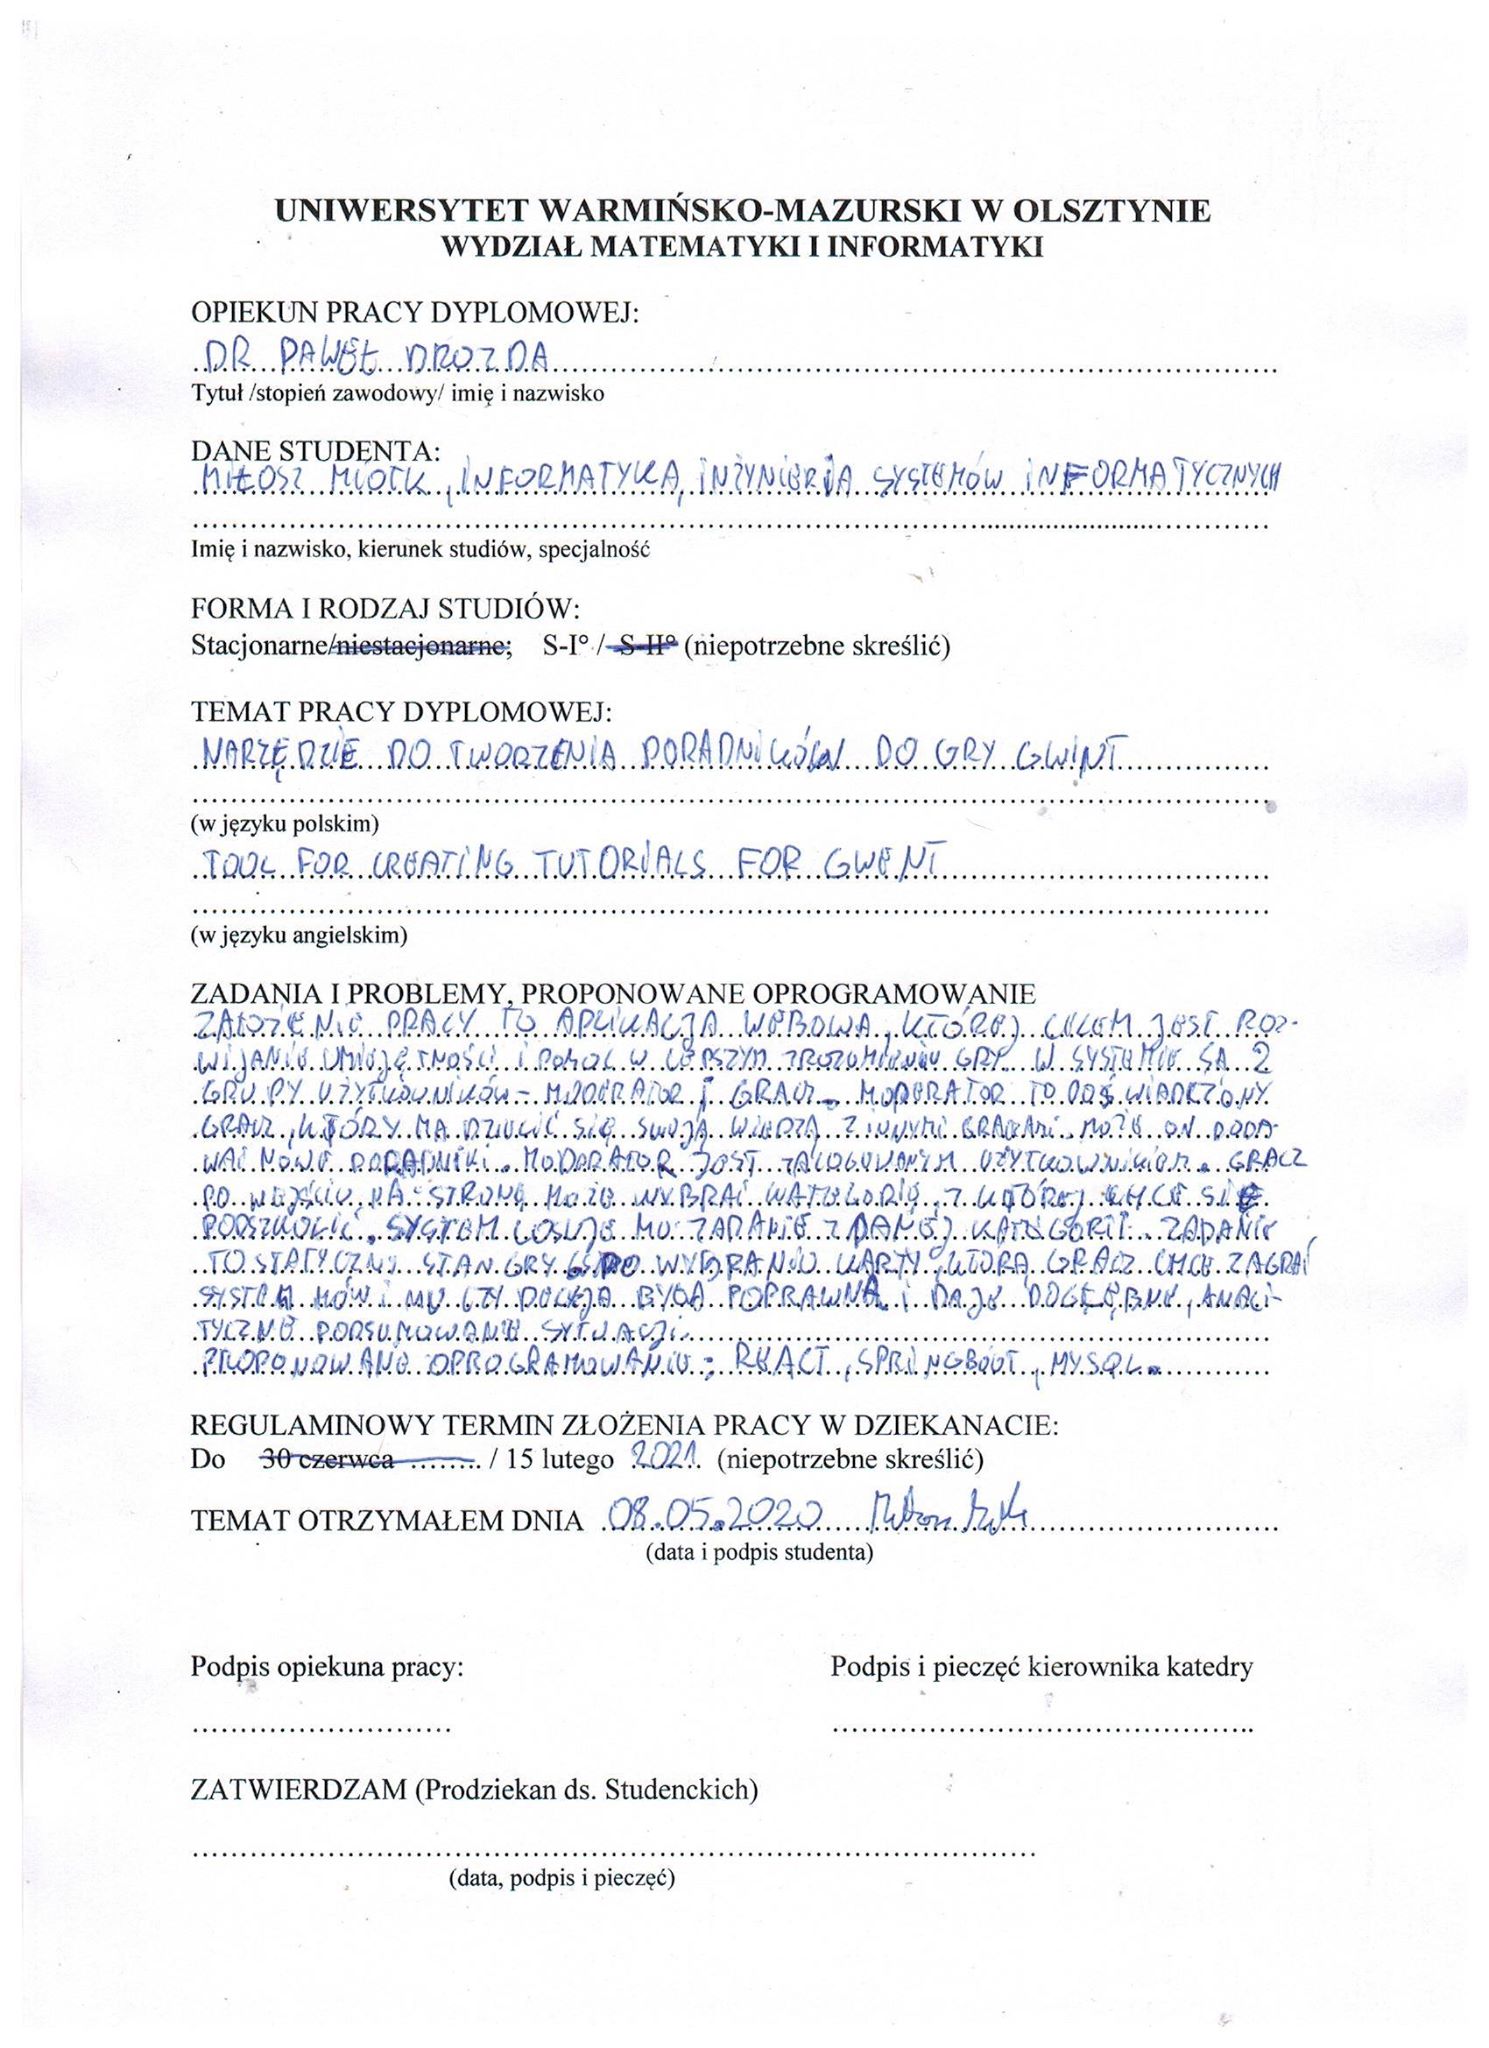 UNIWERSYTET WARMIŃSKO-MAZURSKI W OLSZTYNIE
WYDZIAŁ MATEMATYKI I INFORMATYKI
OPIEKUN PRACY DYPLOMOWEJ:
DR PAWEŁ DROZDA
Tytuł /stopień zawodowy/ imię i nazwisko
DANE STUDENTA:
MIŁOSZ MIOTK, INFORMATYKA, INŻYNIERIA SYSTEMÓW INFORMATYCZNYCH
Imię i nazwisko, kierunek studiów, specjalność
FORMA I RODZAJ STUDIÓW:
Stacjonarne/niestacjonarne; S-I° / S-II° (niepotrzebne skreślić)
TEMAT PRACY DYPLOMOWEJ:
NARZĘDZIE DO TWORZENIA PORADNIKÓW DO GRY GWINT
(w języku polskim)
TOOL FOR CREATING TUTORIALS FOR GWENT
(w języku angielskim)
ZADANIA I PROBLEMY, PROPONOWANE OPROGRAMOWANIE
ZAŁOŻENIE PRACY TO APLIKACJA WEBOWA, KTÓREJ CELEM JEST ROZ-
WIJANIE UMIEJĘTNOŚCI I POMOC W LEPSZYM ZROZUMIENIU GRY. W SYSTEMIE SĄ 2
GRUPY UŻYTKOWNIKÓW - MODERATOR I GRACZ. MODERATOR TO DOŚWIADCZONY
GRACZ, KTÓRY MA DZIELIĆ SIĘ SWOJĄ WIEDZĄ Z INNYMI GRACZAMI. MOŻE ON DODA-
WAĆ NOWE PORADNIKI. MODERATOR JEST ZALOGOWANYM UŻYTKOWNIKIEM. GRACZ
PO WEJŚCIU NA STRONĘ MOŻE WYBRAĆ KATEGORIĘ, Z KTÓREJ CHCE SIĘ
PODSZKOLIĆ. SYSTEM LOSUJE MU ZADANIE Z DANEJ KATEGORII. ZADANIE
TO STATYCZNY STAN GRY. PO WYBRANIU KARTY, KTÓRĄ GRACZ CHCE ZAGRAĆ
SYSTEM MÓWI MU CZY DECYZJA BYŁA POPRAWNA I DAJE DOGŁĘBNE, ANALI-
TYCZNE PODSUMOWANIE SYTUACJI.
PROPONOWANE OPROGRAMOWANIE: REACT, SPRINGBOOT, MYSQL.
REGULAMINOWY TERMIN ZŁOŻENIA PRACY W DZIEKANACIE:
Do 30 czerwca ........ / 15 lutego 2021 (niepotrzebne skreślić)
TEMAT OTRZYMAŁEM DNIA 08.05.2020
(data i podpis studenta)
Podpis opiekuna pracy: Podpis i pieczęć kierownika katedry
ZATWIERDZAM (Prodziekan ds. Studenckich)
(data, podpis i pieczęć)